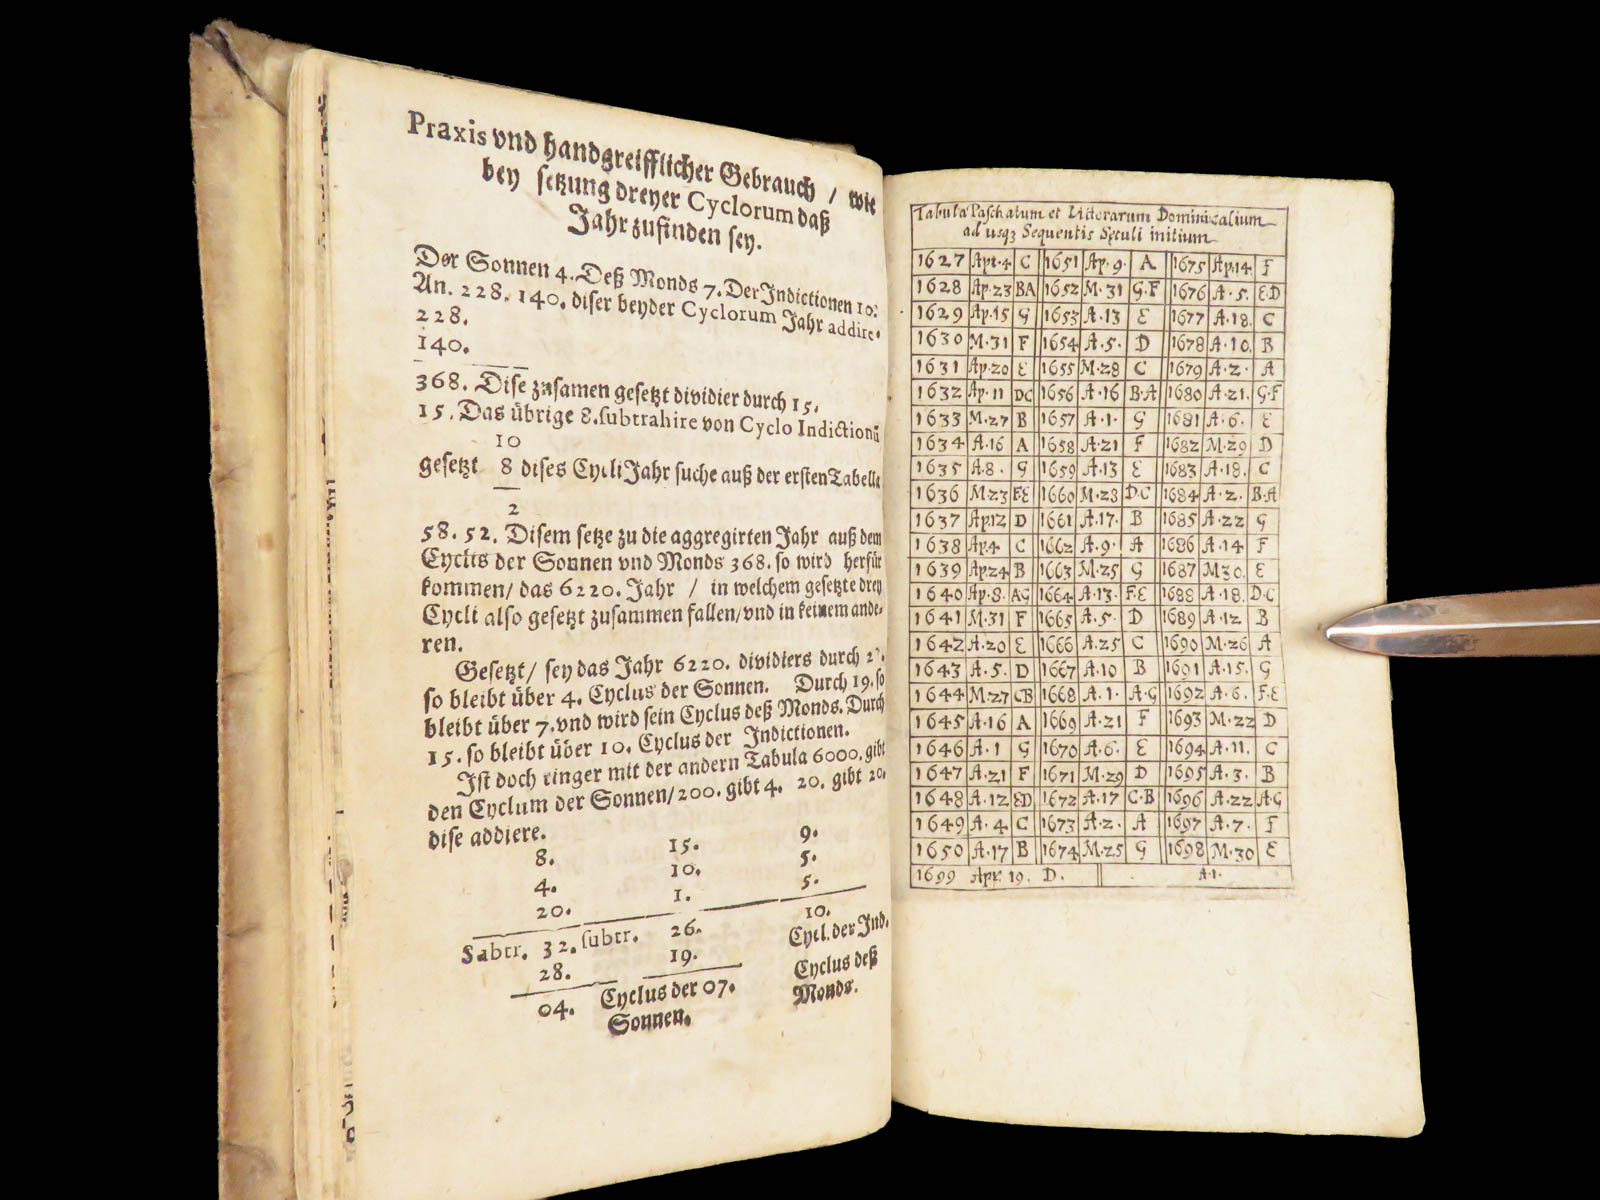 Praxis vnd handgreifflicher Gebrauch / wie
bey setzung dreyer Cyclorum daß
Jahr zufinden sey.
Der Sonnen 4. Deß Monds 7. Der Indictionen 10.
An. 228. 140. diser beyder Cyclorum Jahr addire.
228.
140.
368. Dise zusamen gesetzt dividier durch 15.
15. Das übrige 8. subtrahire von Cyclo Indictionū
10
gesetzt 8 dises Cycli Jahr suche auß der ersten Tabella
2
58. 52. Disem setze zu die aggregirten Jahr auß dem
Cyclis der Sonnen vnd Monds 368. so wird herfür
kommen/ das 6220. Jahr / in welchem gesetzte drey
Cycli also gesetzt zusammen fallen/ vnd in keinem ande-
ren.
Gesetzt/ sey das Jahr 6220. dividiers durch
so bleibt über 4. Cyclus der Sonnen. Durch 19. so
bleibt über 7. vnd wird sein Cyclus deß Monds. Durch
15. so bleibt über 10. Cyclus der Indictionen.
Ist doch ringer mit der andern Tabula 6000. gibt
den Cyclum der Sonnen/ 200. gibt 4. 20. gibt 20.
dise addiere.
8. 15. 9.
4. 10. 5.
20. 1. 5.
Sabtr. 32. subtr. 26. 10.
28. 19. Cycl. der Ind.
04. Cyclus der 07. Cyclus deß
Sonnen. Monds.
Tabula Paschatum et Litterarum Dominicalium
ad usqz Sequentis Sęculi initium
1627 Apr. 4 C 1651 Ap. 9. A 1675 Ap. 14. F
1628 Ap. 23 BA 1652 M. 31 G.F 1676 A. 5. E.D
1629 Ap. 15 G 1653 A. 13 E 1677 A. 18. C
1630 M. 31 F 1654 A. 5. D 1678 A. 10. B
1631 Ap. 20 E 1655 M. 28 C 1679 A. 2. A
1632 Ap. 11 DC 1656 A. 16 B.A 1680 A. 21. G.F
1633 M. 27 B 1657 A. 1. G 1681 A. 6. E
1634 A. 16 A 1658 A. 21 F 1682 M. 29 D
1635 A. 8. G 1659 A. 13 E 1683 A. 18. C
1636 M. 23 F.E 1660 M. 28 D.C 1684 A. 2. B.A
1637 Ap. 12 D 1661 A. 17. B 1685 A. 22 G
1638 Ap. 4 C 1662 A. 9. A 1686 A. 14 F
1639 Ap. 24 B 1663 M. 25 G 1687 M. 30. E
1640 Ap. 8. AG 1664 A. 13. F.E 1688 A. 18. D.C
1641 M. 31 F 1665 A. 5. D 1689 A. 12 B
1642 A. 20 E 1666 A. 25 C 1690 M. 26 A
1643 A. 5. D 1667 A. 10 B 1691 A. 15. G
1644 M. 27 CB 1668 A. 1. A.G 1692 A. 6. F.E
1645 A. 16 A 1669 A. 21 F 1693 M. 22 D
1646 A. 1 G 1670 A. 6. E 1694 A. 11. C
1647 A. 21 F 1671 M. 29 D 1695 A. 3. B
1648 A. 12 ED 1672 A. 17 C.B 1696 A. 22 A.G
1649 A. 4 C 1673 A. 2. A 1697 A. 7. F
1650 A. 17 B 1674 M. 25 G 1698 M. 30 E
1699 Apr. 19. D. A.1.